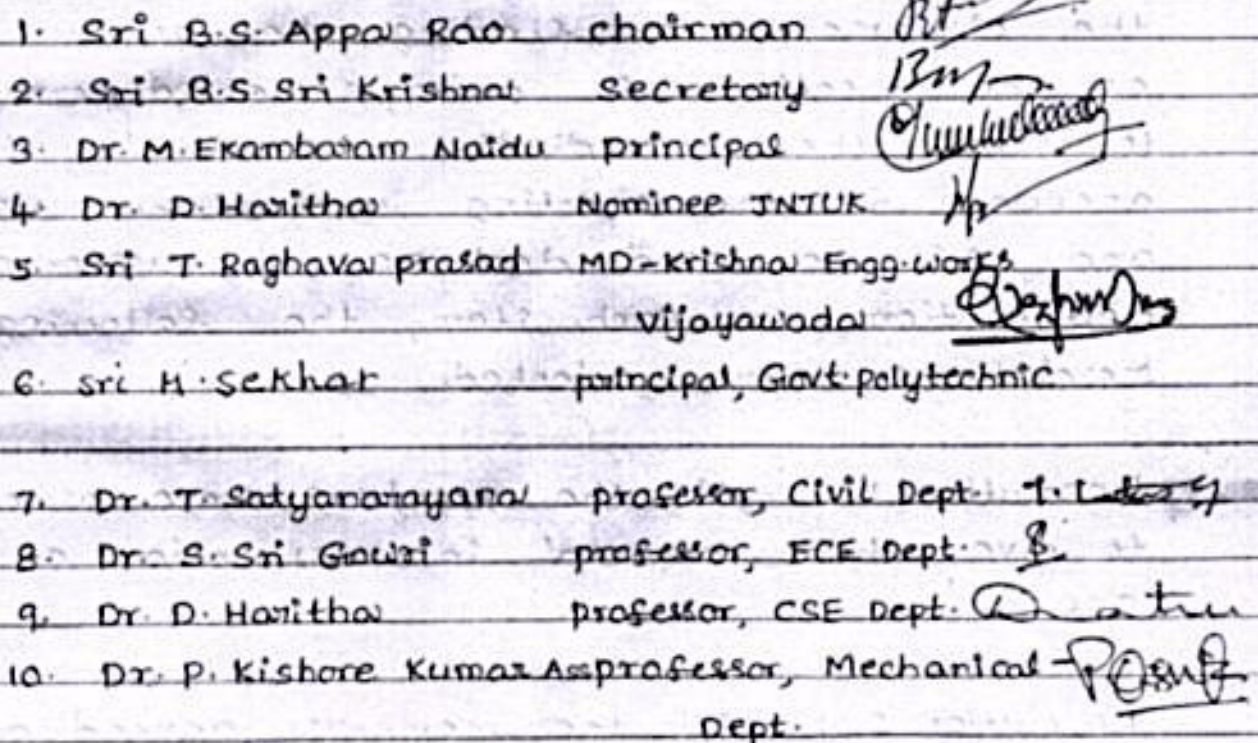 1. Sri B.S. Appa Rao chairman
2. Sri B.S Sri Krishna Secretary
3. Dr. M. Ekambaram Naidu principal
4. Dr. D. Haritha Nominee JNTUK
5 Sri T. Raghava prasad MD-Krishna Engg.works
Vijayawada
6. Sri H. Sekhar principal, Govt.polytechnic
7. Dr. T. Satyanarayana professor, Civil Dept.
8. Dr. S. Sri Gowri professor, ECE Dept.
9. Dr. D. Haritha professor, CSE Dept.
10. Dr. P. Kishore Kumar Assprofessor, Mechanical
Dept.